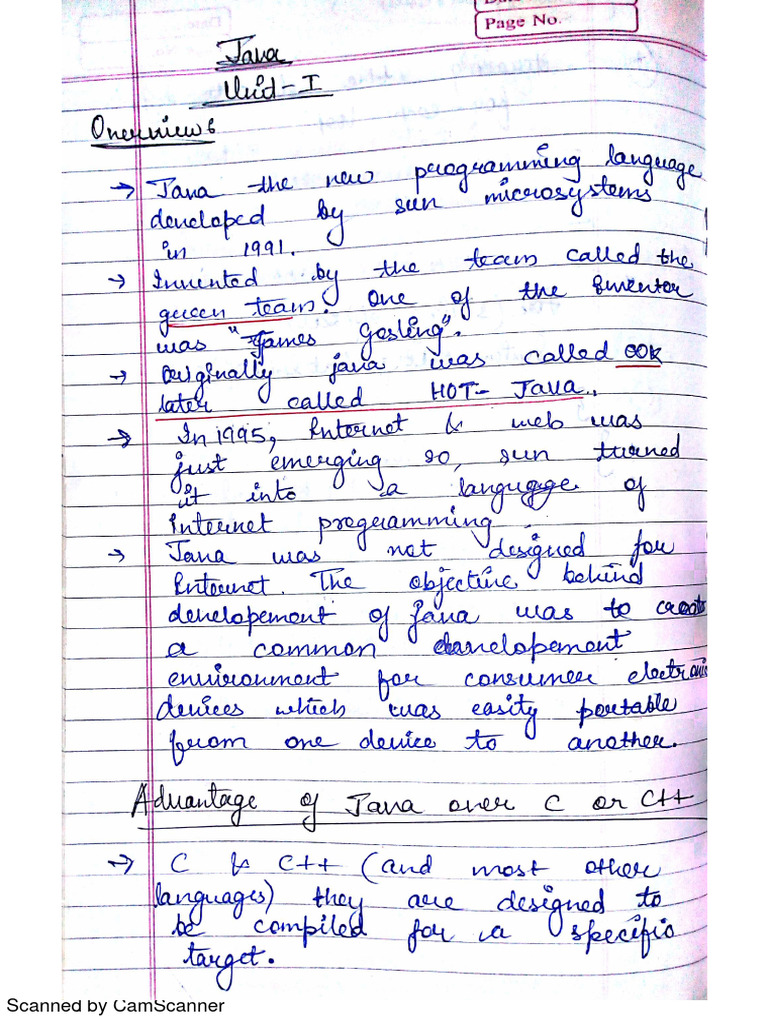 Page No.
Java
Unit - I
Overview :
→ Java the new programming language
developed by sun microsystems
in 1991.
→ Invented by the team called the
gueen team. One of the inventor
was "James Gosling".
→ Originally java was called OOK
later called HOT- Java.
→ In 1995, Internet & web was
just emerging so, sun turned
it into a language of
Internet programming
→ Java was not designed for
Internet. The objective behind
developement of Java was to create
a common developement
environment for consumer electronic
devices which was easity portable
from one device to another.
Advantage of Java over C or C++
→ C & C++ (and most other
languages) they are designed to
be compiled for a specific
target.
Scanned by CamScanner